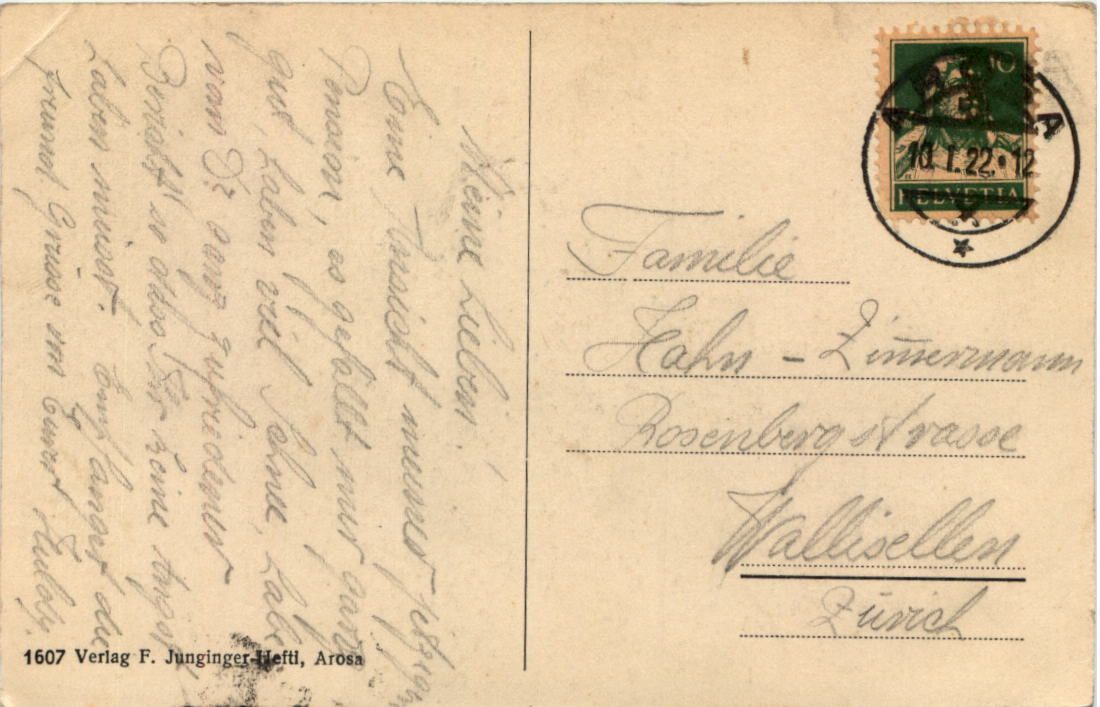 Meine Lieben!
Eine Ansicht meiner jetzigen
Pension, es gefällt mir ganz
gut, haben viel Schnee, habe
von Dr ganz zufriedener
Bericht so dass Ihr keine Angst
haben müsst. Empfanget die
freundl Grüsse von Eurer
1607 Verlag F. Junginger-Hefti, Arosa
10
AROSA
10. I. 22. 12
HELVETIA
Familie
Hahn - Zimmermann
Rosenbergstrasse
Wallisellen
Zürich